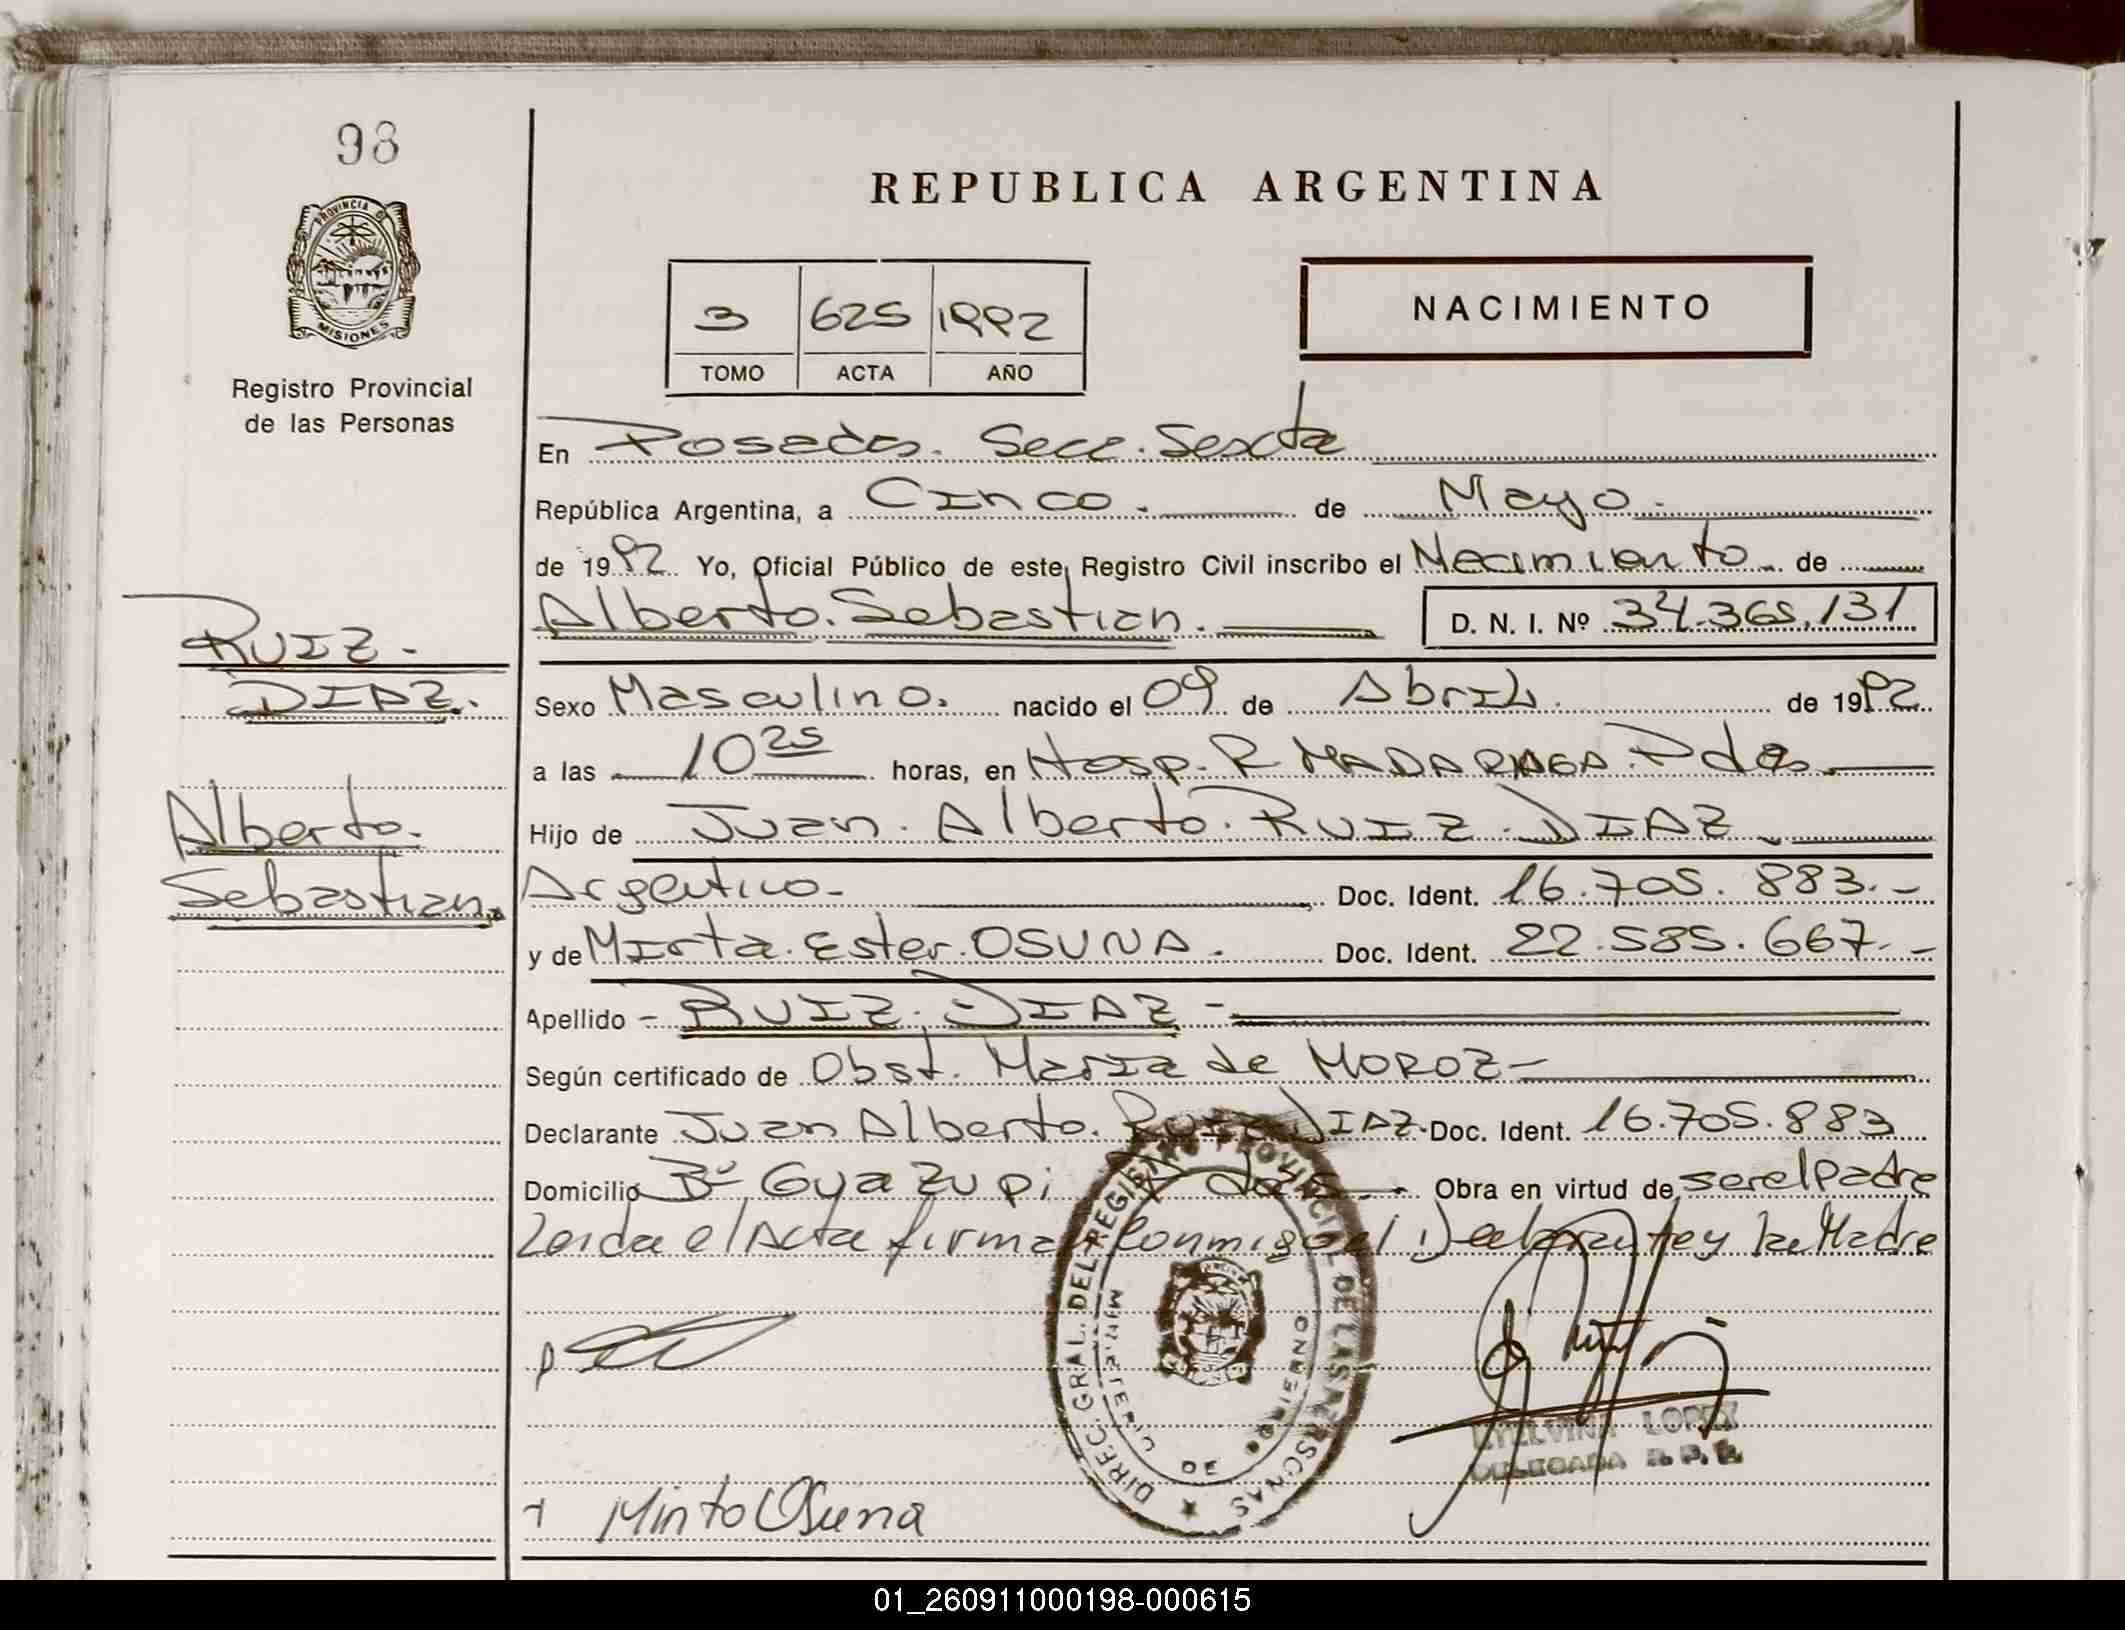 98
PROVINCIA D
MISIONES
Registro Provincial
de las Personas
REPUBLICA ARGENTINA
3 625 1992
TOMO ACTA AÑO
NACIMIENTO
En Posadas. Secc. Sexta
República Argentina, a Cinco. de Mayo.
de 1992 Yo, Oficial Público de este Registro Civil inscribo el Nacimiento de
Alberto. Sebastian. D. N. I. Nº 34.365.131
RUIZ.
DIAZ.
Alberto.
Sebastian.
Sexo Masculino. nacido el 09 de Abril. de 1992
a las 10 25 horas, en Hosp. R MADARIAGA. Pdas.
Hijo de Juan. Alberto. RUIZ. DIAZ
Argentino Doc. Ident. 16.705.883.-
y de Mirta. Ester. OSUNA. Doc. Ident. 22.585.667.-
Apellido - RUIZ. DIAZ -
Según certificado de Obst. Maria de MOROZ -
Declarante Juan Alberto. Ruiz DIAZ. Doc. Ident. 16.705.883
Domicilio Bº Guazupi Pdas. Obra en virtud de ser el Padre
Leida el Acta firma Conmigo el Declarante y la Madre
DIREC. GRAL. DEL REGISTRO PROVINCIAL DE LAS PERSONAS
MINISTERIO DE GOBIERNO
LOPEZ
DELEGADA R. P. P.
Mirta Osuna
01_260911000198-000615